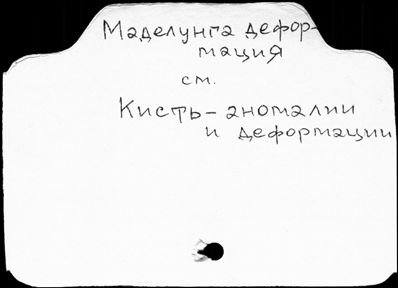 Маделунга дефор-
мация
см.
Кисть - аномалии
и деформации